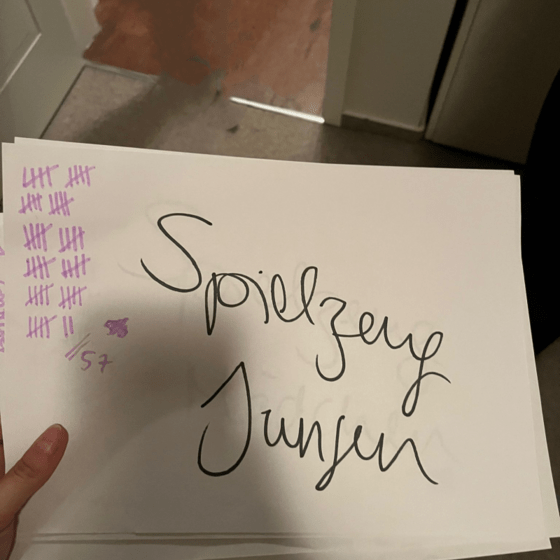 Spielzeug
Jungen
//57